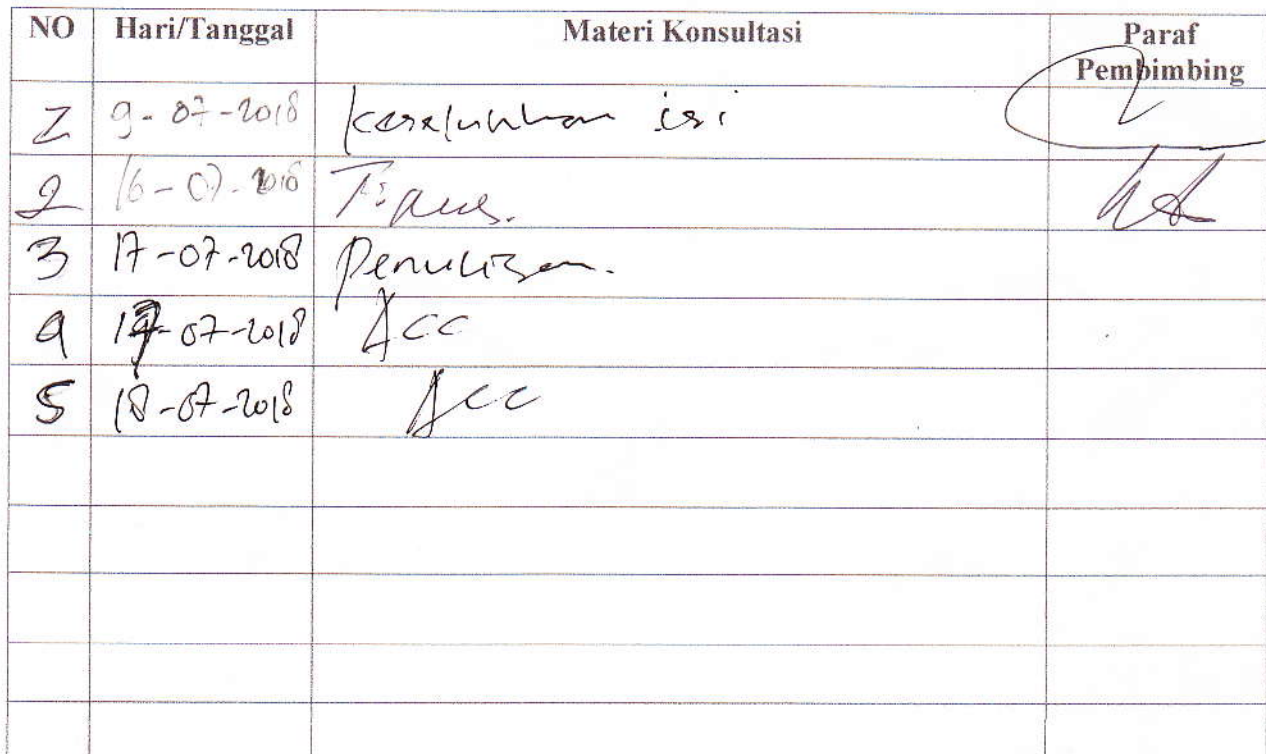 NO Hari/Tanggal Materi Konsultasi Paraf
Pembimbing
9-07-2018 keseluruhan isi
2 16-07-2018
3 17-07-2018 Penulisan.
4 07-2018 Acc
5 18-07-2018 Acc